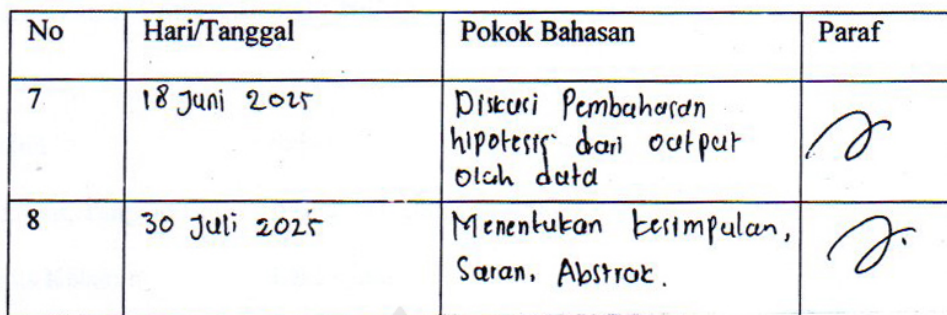 No Hari/Tanggal Pokok Bahasan Paraf
7 18 Juni 2025 Diskusi Pembahasan
hipotesis dari output
olah data
8 30 Juli 2025 Menentukan kesimpulan,
Saran, Abstrak.